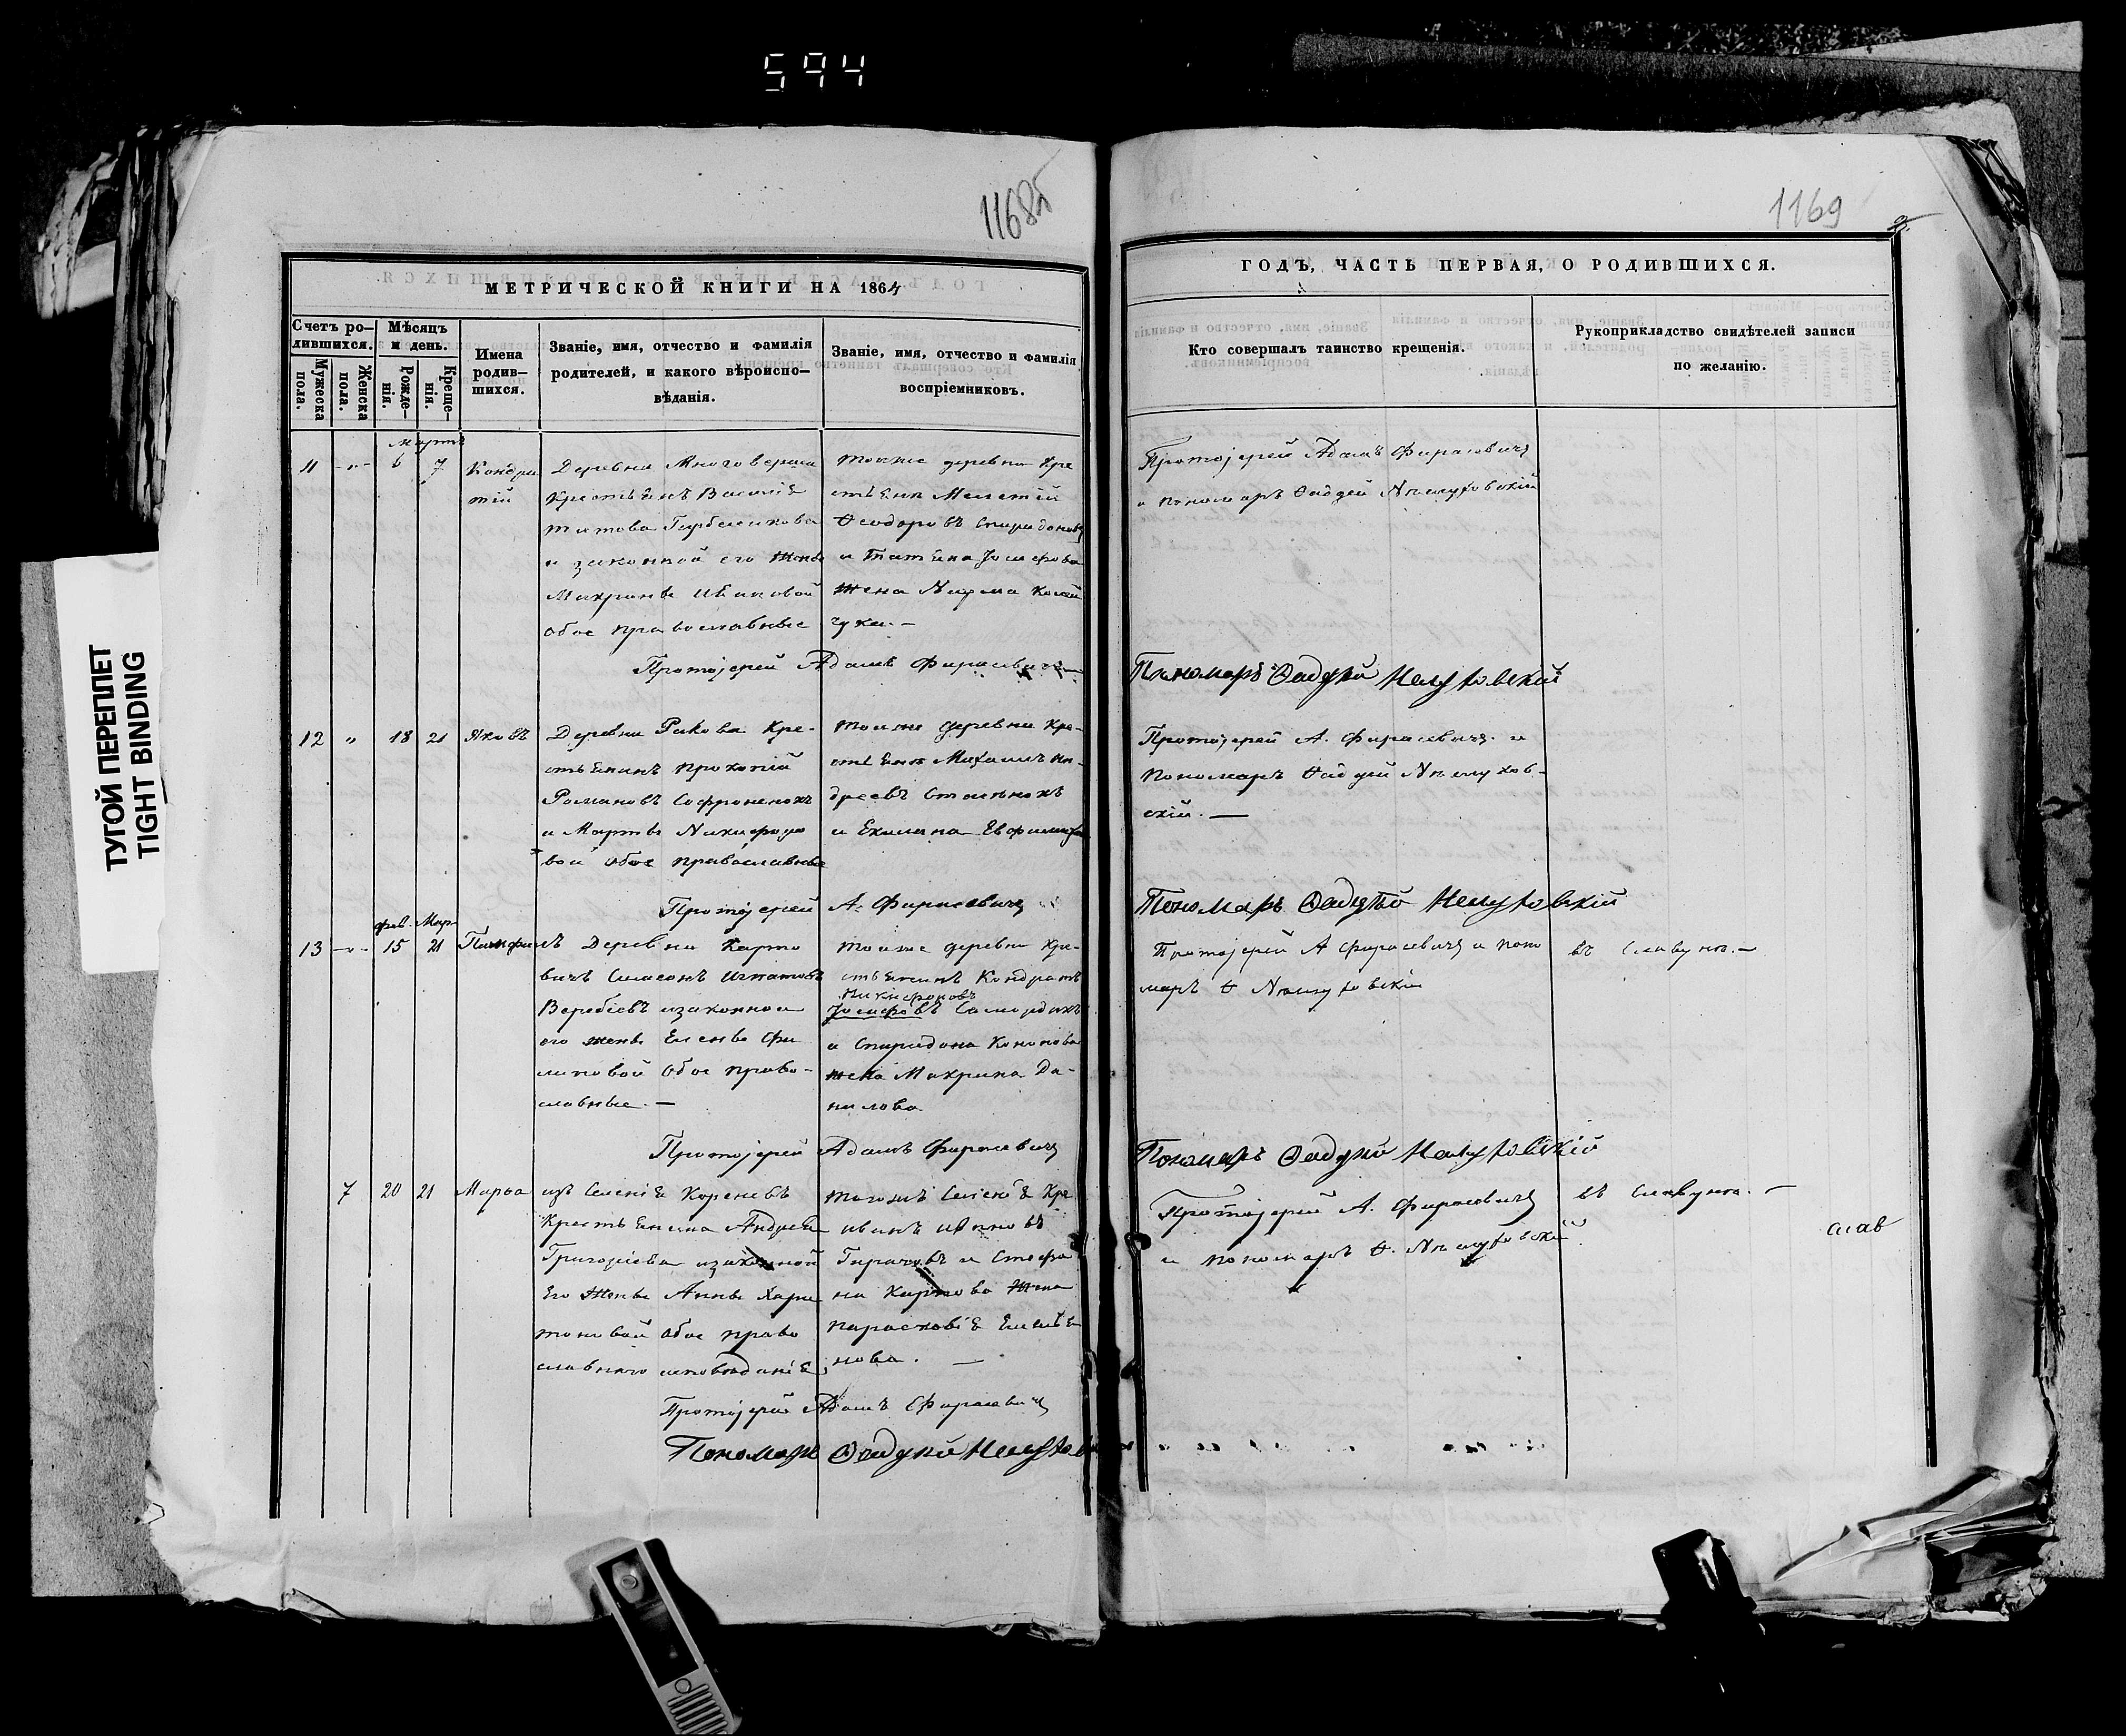 594
1168б
МЕТРИЧЕСКОЙ КНИГИ НА 1864
Счетъ ро-дившихся.
Мѣсяцъ и день.
Мужеска пола.
Женска пола.
Рожде-нія.
Креще-нія.
Имена родив-шихся.
Званіе, имя, отчество и фамилія
родителей, и какого вѣроиспо-
вѣданія.
Званіе, имя, отчество и фамилія
воспріемниковъ.
Мартъ
11 -"- 6 7 Кондра
тій
Деревни
Крестьянъ Василія
Титова
и законной его жены
Макрины Ивановой
обое православные
тоиже деревни Кре
стьянъ Мелетій
Ѳеодоровъ Спиридоновъ
и Татьяна Іосифова
жена
чука. -
Протоіерей Адамъ Фирасевичъ
12 " 18 21 Яковъ
Деревни Рикова Кре-
стьянинъ Прокопій
Романовъ Софроненокъ
и Марты Никифоро
вой обое православные
тоиже деревни Кре-
стьянъ Михаилъ Ан-
дреевъ
и Екилина Евфимова
Протоіерей А. Фирасевичъ
фев. Мар
13 -"- 15 21 Памфилъ
Деревни Карпо
вичъ Симеонъ Игнатовъ
Воробьевъ и законной
его жены Елены Фи
липовой обое право-
славные. -
тоиже деревни Кре-
стьянинъ Кондратъ
Никифоровъ
Іосифовъ
и Спиридона Кононова
жена Макрина Да-
нилова
Протоіерей Адамъ Фирасевичъ
7 20 21 Марѳа
изъ Селенія Кореневъ
Крестьянина Андрея
Григорьева и законной
Его Жены Анны Хари
тоновой обое право
славнаго исповѣданія
тогожъ Селенія Кре
Иванъ Ивановъ
и Стефа
на Карпова жена
Парасковія
нова. -
Протоіерей Адамъ Фирасевичъ
Пономарь Ѳаддей
1169
ГОДЪ, ЧАСТЬ ПЕРВАЯ, О РОДИВШИХСЯ.
Кто совершалъ таинство крещенія.
Рукоприкладство свидѣтелей записи
по желанію.
Протоіерей Адамъ Фирасевичъ
и пономарь Ѳаддей Нѣмуховскій
Пономарь Ѳаддей Немуховскій
Протоіерей А. Фирасевичъ и
Пономарь Ѳаддей Нѣмухов-
скій. -
Пономарь Ѳаддей Немуховскій
Протоіерей А Фирасевичъ и поно
марь Ѳ Нѣмуховскій
въ
Пономарь Ѳаддей Немуховскій
Протоіерей А. Фирасевичъ
и пономарь Ѳ. Нѣмуховскій
въ
слав
ТУГОЙ ПЕРЕПЛЕТ
TIGHT BINDING